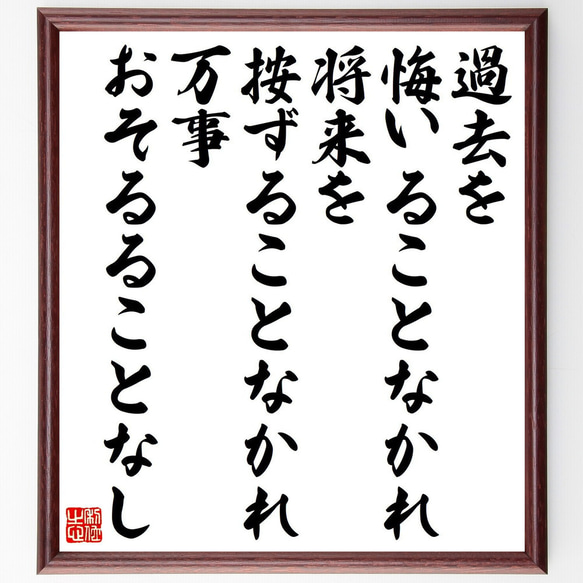 過去を
悔いることなかれ
将来を
按ずることなかれ
万事
おそるることなし